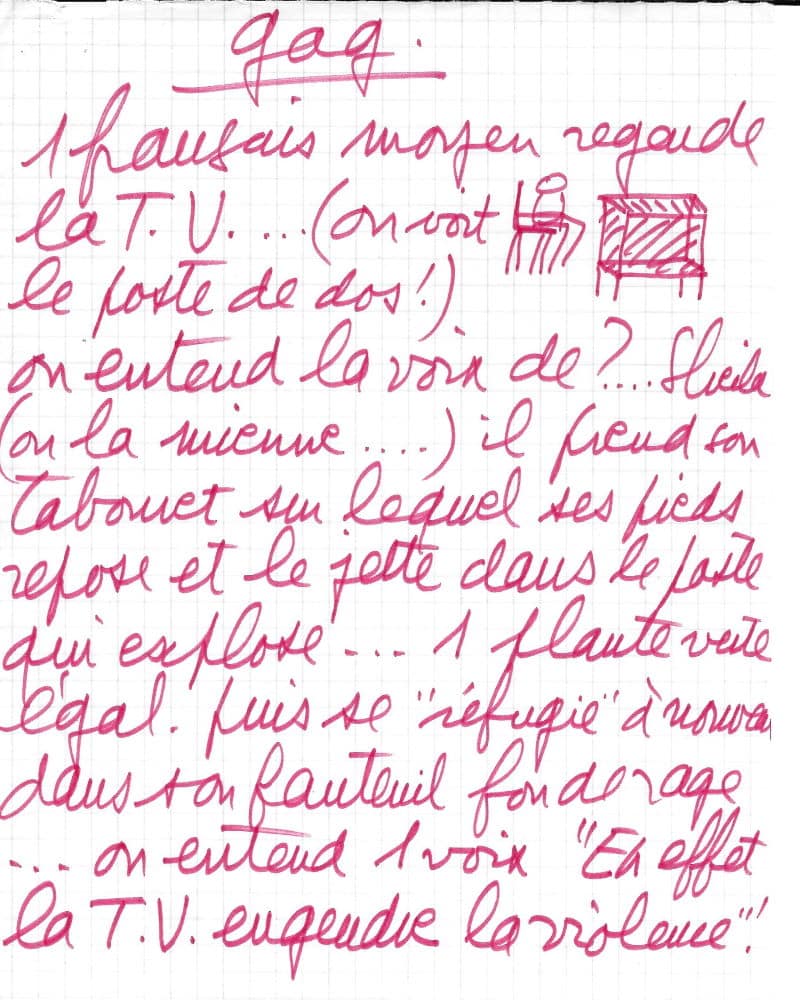 gag.
1 français moyen regarde
la T.V. ... (on voit
le poste de dos!)
on entend la voix de?.... Sheila
(ou la mienne ....) il prend son
Tabouret sur lequel ses pieds
repose et le jette dans le poste
qui explose ... 1 plante verte
légal. puis se "réfugie" à nouveau
dans son fauteuil fou de rage
... on entend 1 voix "En effet
la T.V. engendre la violence"!